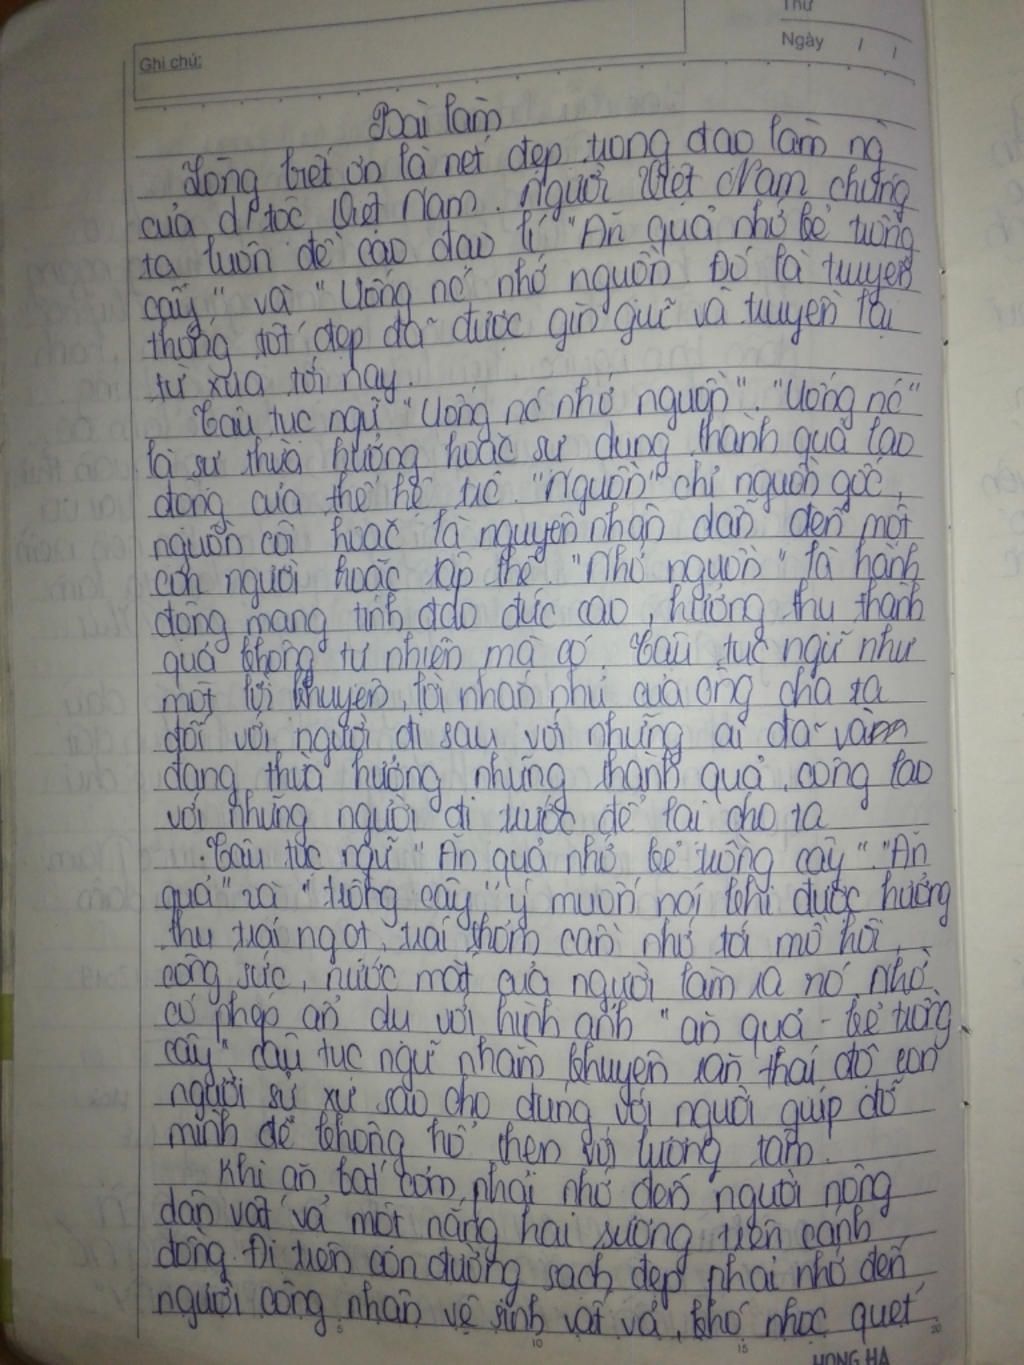 Thứ
Ngày / /
Ghi chú:
Bài làm
Lòng biết ơn là nét đẹp trong đạo làm ng
của d/tộc Việt Nam. Người Việt Nam chúng
ta luôn đề cao đạo lí "Ăn quả nhớ kẻ trồng
cây" và "Uống nc nhớ nguồn. Đó là truyền
thống tốt đẹp đã được gìn giữ và truyền lại
từ xưa tới nay.
Câu tục ngữ "Uống nc nhớ nguồn". "Uống nc"
là sự thừa hưởng hoặc sự dụng thành quả lao
động của thế hệ trc. "Nguồn" chỉ nguồn gốc,
nguồn cội hoặc là nguyên nhân dẫn đến một
con người hoặc tập thể. "Nhớ nguồn" là hành
động mang tính đạo đức cao, hưởng thụ thành
quả không tự nhiên mà có. Câu tục ngữ như
một lời khuyên, lời nhắn nhủ của ông cha ta
đối với người đi sau với những ai đã và
đang thừa hưởng những thành quả, công lao
với những người đi trước để lại cho ta
Câu tục ngữ "Ăn quả nhớ kẻ trồng cây". "Ăn
quả" và "trồng cây" ý muốn nói khi được hưởng
thụ trái ngọt, trái thơm cần nhớ tới mồ hôi,
công sức, nước mắt của người làm ra nó. Nhờ
có phép ẩn dụ với hình ảnh "ăn quả - kẻ trồng
cây" câu tục ngữ nhằm khuyên răn thái độ con
người sử xự sao cho đúng với người giúp đỡ
mình để không hổ thẹn với lương tâm.
Khi ăn bát cơm, phải nhớ đến người nông
dân vất vả một nắng hai sương trên cánh
đồng. Đi trên con đường sạch đẹp phải nhớ đến
người công nhân vệ sinh vất vả, khó nhọc quét
5 10 15 20
HONG HA